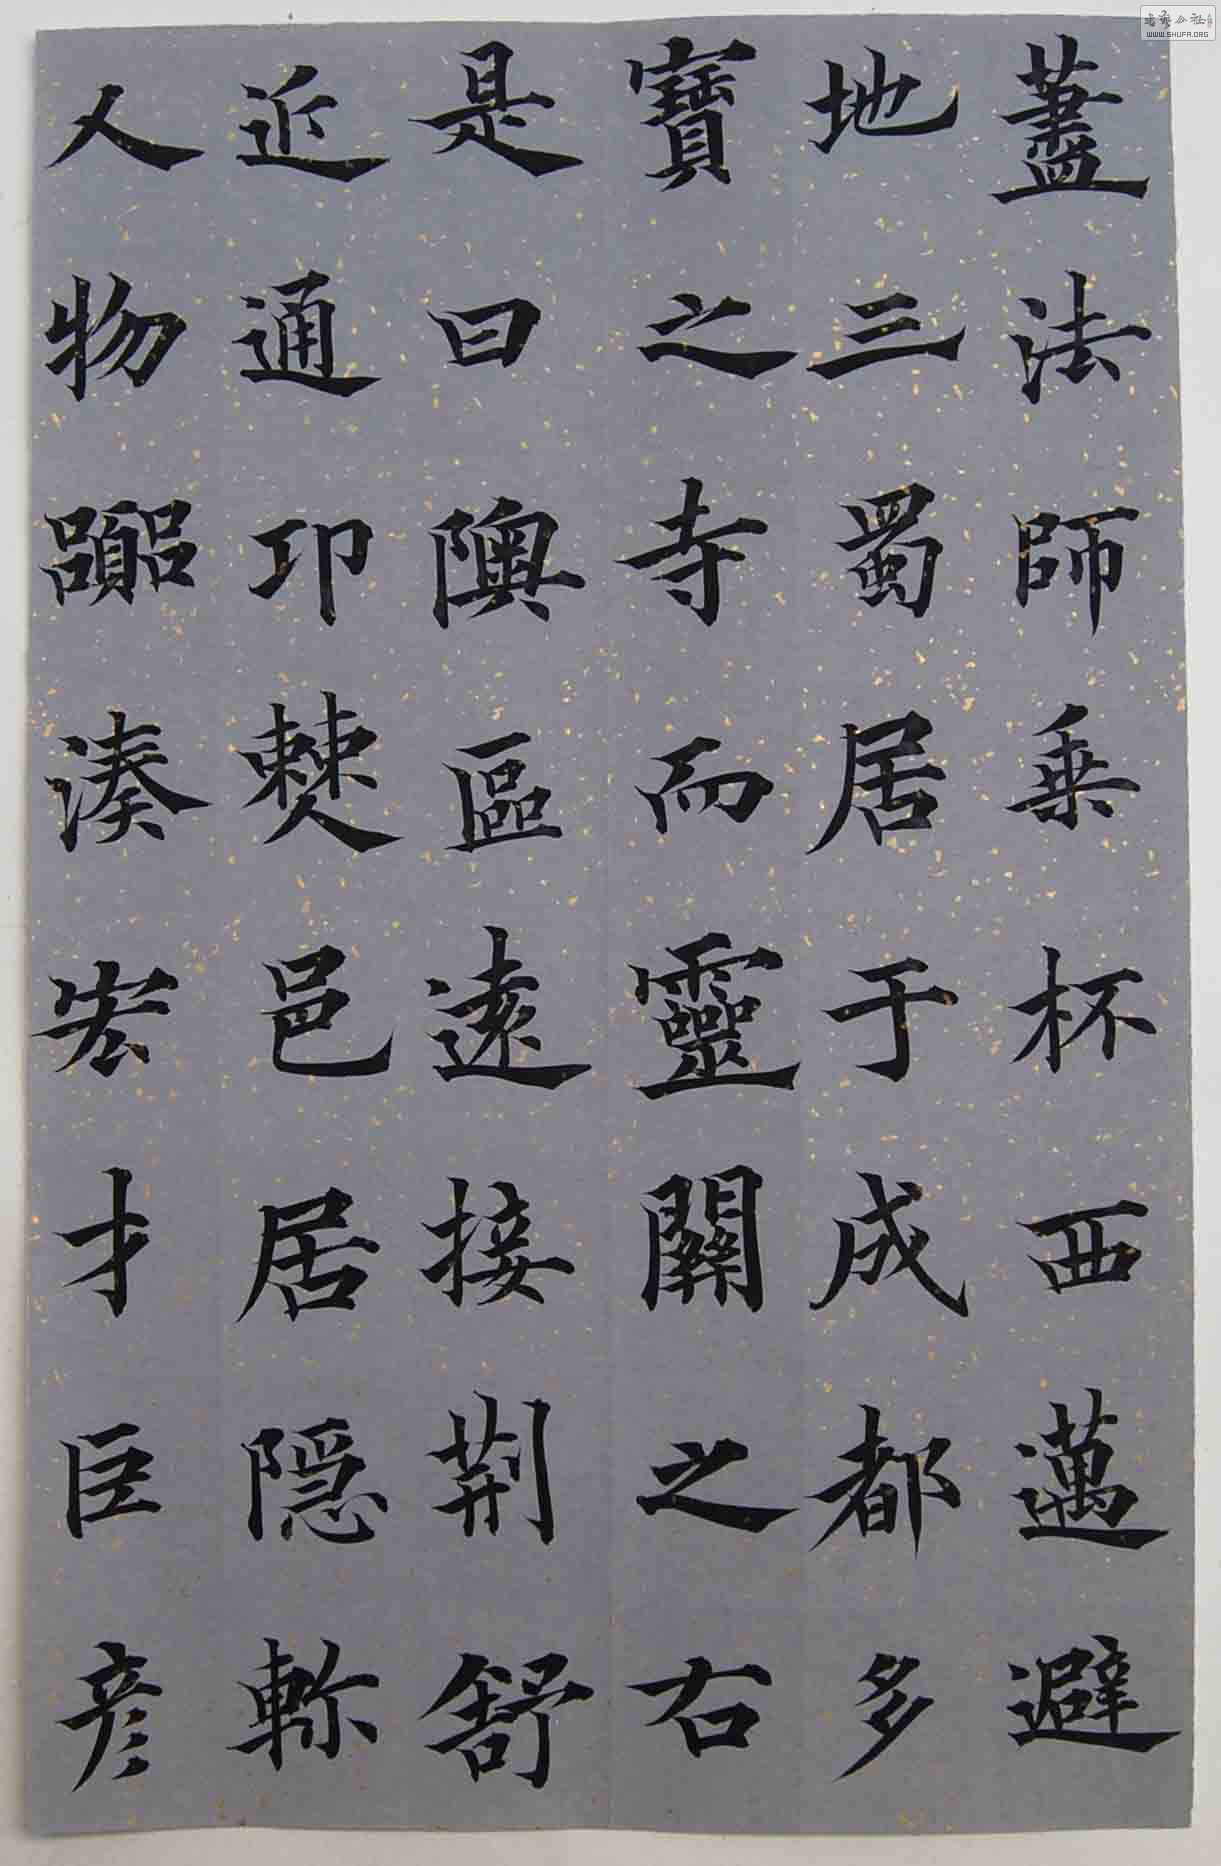 蓋法師乗杯西邁避
地三蜀居于成都多
寶之寺而靈關之右
是曰隩區遠接荆舒
近通邛僰邑居隱軫
人物囂湊宏才巨彦
WWW.SHUFA.ORG